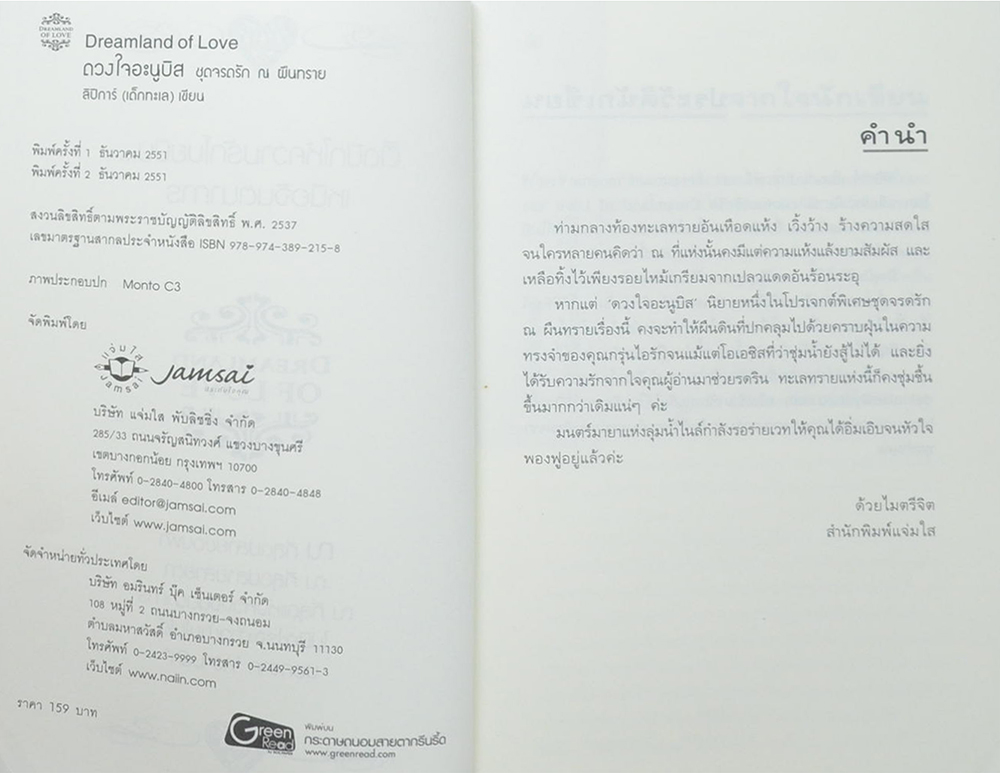 DREAMLAND
OF LOVE
Dreamland of Love
ดวงใจอะนูบิส ชุดจรดรัก ณ ผืนทราย
ลิปิการ์ (เด็กทะเล) เขียน
พิมพ์ครั้งที่ 1 ธันวาคม 2551
พิมพ์ครั้งที่ 2 ธันวาคม 2551
สงวนลิขสิทธิ์ตามพระราชบัญญัติลิขสิทธิ์ พ.ศ. 2537
เลขมาตรฐานสากลประจำหนังสือ ISBN 978-974-389-215-8
ภาพประกอบปก Monto C3
จัดพิมพ์โดย
แจ่มใส
Jamsai
Jamsai
บริษัท แจ่มใส พับลิชชิ่ง จำกัด
285/33 ถนนจรัญสนิทวงศ์ แขวงบางขุนศรี
เขตบางกอกน้อย กรุงเทพฯ 10700
โทรศัพท์ 0-2840-4800 โทรสาร 0-2840-4848
อีเมล์ editor@jamsai.com
เว็บไซต์ www.jamsai.com
จัดจำหน่ายทั่วประเทศโดย
บริษัท อมรินทร์ บุ๊ค เซ็นเตอร์ จำกัด
108 หมู่ที่ 2 ถนนบางกรวย-จงถนอม
ตำบลมหาสวัสดิ์ อำเภอบางกรวย จ.นนทบุรี 11130
โทรศัพท์ 0-2423-9999 โทรสาร 0-2449-9561-3
เว็บไซต์ www.naiin.com
ราคา 159 บาท
Green
Read
พิมพ์บน
กระดาษถนอมสายตากรีนรี้ด
www.greenread.com
คำนำ
ท่ามกลางท้องทะเลทรายอันเหือดแห้ง เวิ้งว้าง ร้างความสดใส
จนใครหลายคนคิดว่า ณ ที่แห่งนั้นคงมีแต่ความแห้งแล้งยามสัมผัส และ
เหลือทิ้งไว้เพียงรอยไหม้เกรียมจากเปลวแดดอันร้อนระอุ
หากแต่ ‘ดวงใจอะนูบิส’ นิยายหนึ่งในโปรเจกต์พิเศษชุดจรดรัก
ณ ผืนทรายเรื่องนี้ คงจะทำให้ผืนดินที่ปกคลุมไปด้วยคราบฝุ่นในความ
ทรงจำของคุณกรุ่นไอรักจนแม้แต่โอเอซิสที่ว่าชุ่มน้ำยังสู้ไม่ได้ และยิ่ง
ได้รับความรักจากใจคุณผู้อ่านมาช่วยรดริน ทะเลทรายแห่งนี้ก็คงชุ่มชื้น
ขึ้นมากกว่าเดิมแน่ๆ ค่ะ
มนตร์มายาแห่งลุ่มน้ำไนล์กำลังรอร่ายเวทให้คุณได้อิ่มเอิบจนหัวใจ
พองฟูอยู่แล้วค่ะ
ด้วยไมตรีจิต
สำนักพิมพ์แจ่มใส